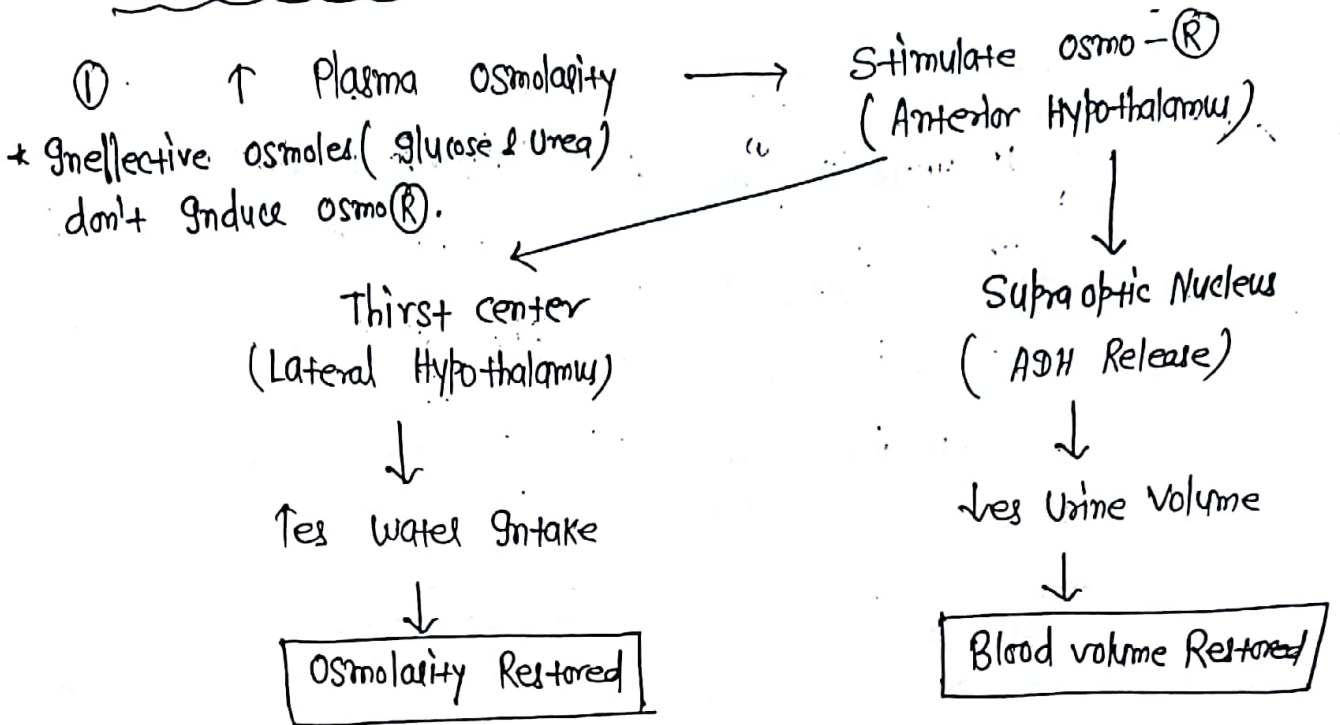 ① ↑ Plasma Osmolality → Stimulate Osmo-Ⓡ
(Anterior Hypothalamus).
* Ineffective osmoles (glucose & Urea)
don't Induce osmoⓇ.
Thirst center
(Lateral Hypothalamus)
↓
↑es Water Intake
↓
Osmolality Restored
Supra optic Nucleus
(ADH Release)
↓
↓es Urine Volume
↓
Blood volume Restored